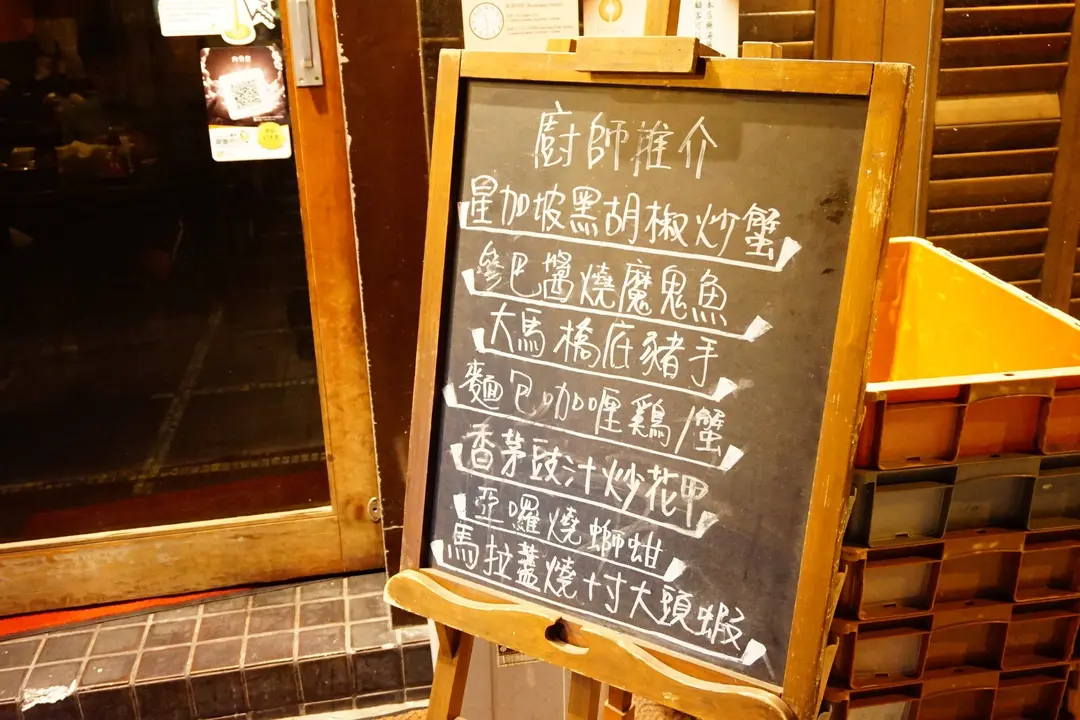 廚師推介
星加坡黑胡椒炒蟹
參巴醬燒魔鬼魚
大馬橋底豬手
麵包咖喱鷄/蟹
香茅豉汁炒花甲
亞囉燒螄蚶
馬拉盞燒十寸大頭蝦